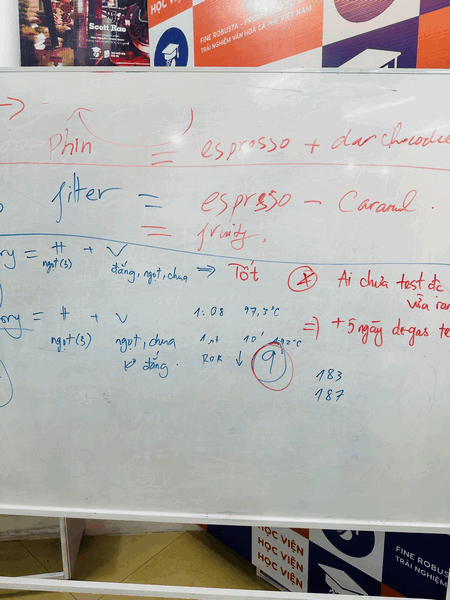 Scott Rao
HỌC VIỆN
FINE ROBUSTA - PR
TRẢI NGHIỆM VĂN HÓA CÀ PHÊ VIỆT NAM
→
Phin = espresso + dar chocolate
filter = espresso - Caramel.
= fruity.
ory = H + V
ngọt(s) đắng, ngọt, chua ⇒ Tốt
Ai chưa test đc
vừa ran
ory = H + V 1:08 97,3°C
⇒ +5 ngày degas te
ngọt(s) ngọt, chua 10' 192°C
đắng. ROR ↓ 9'
183
187
HỌC VIỆN
HỌC VIỆN
HỌC VIỆN
FINE ROBUSTA
TRẢI NGHIỆM